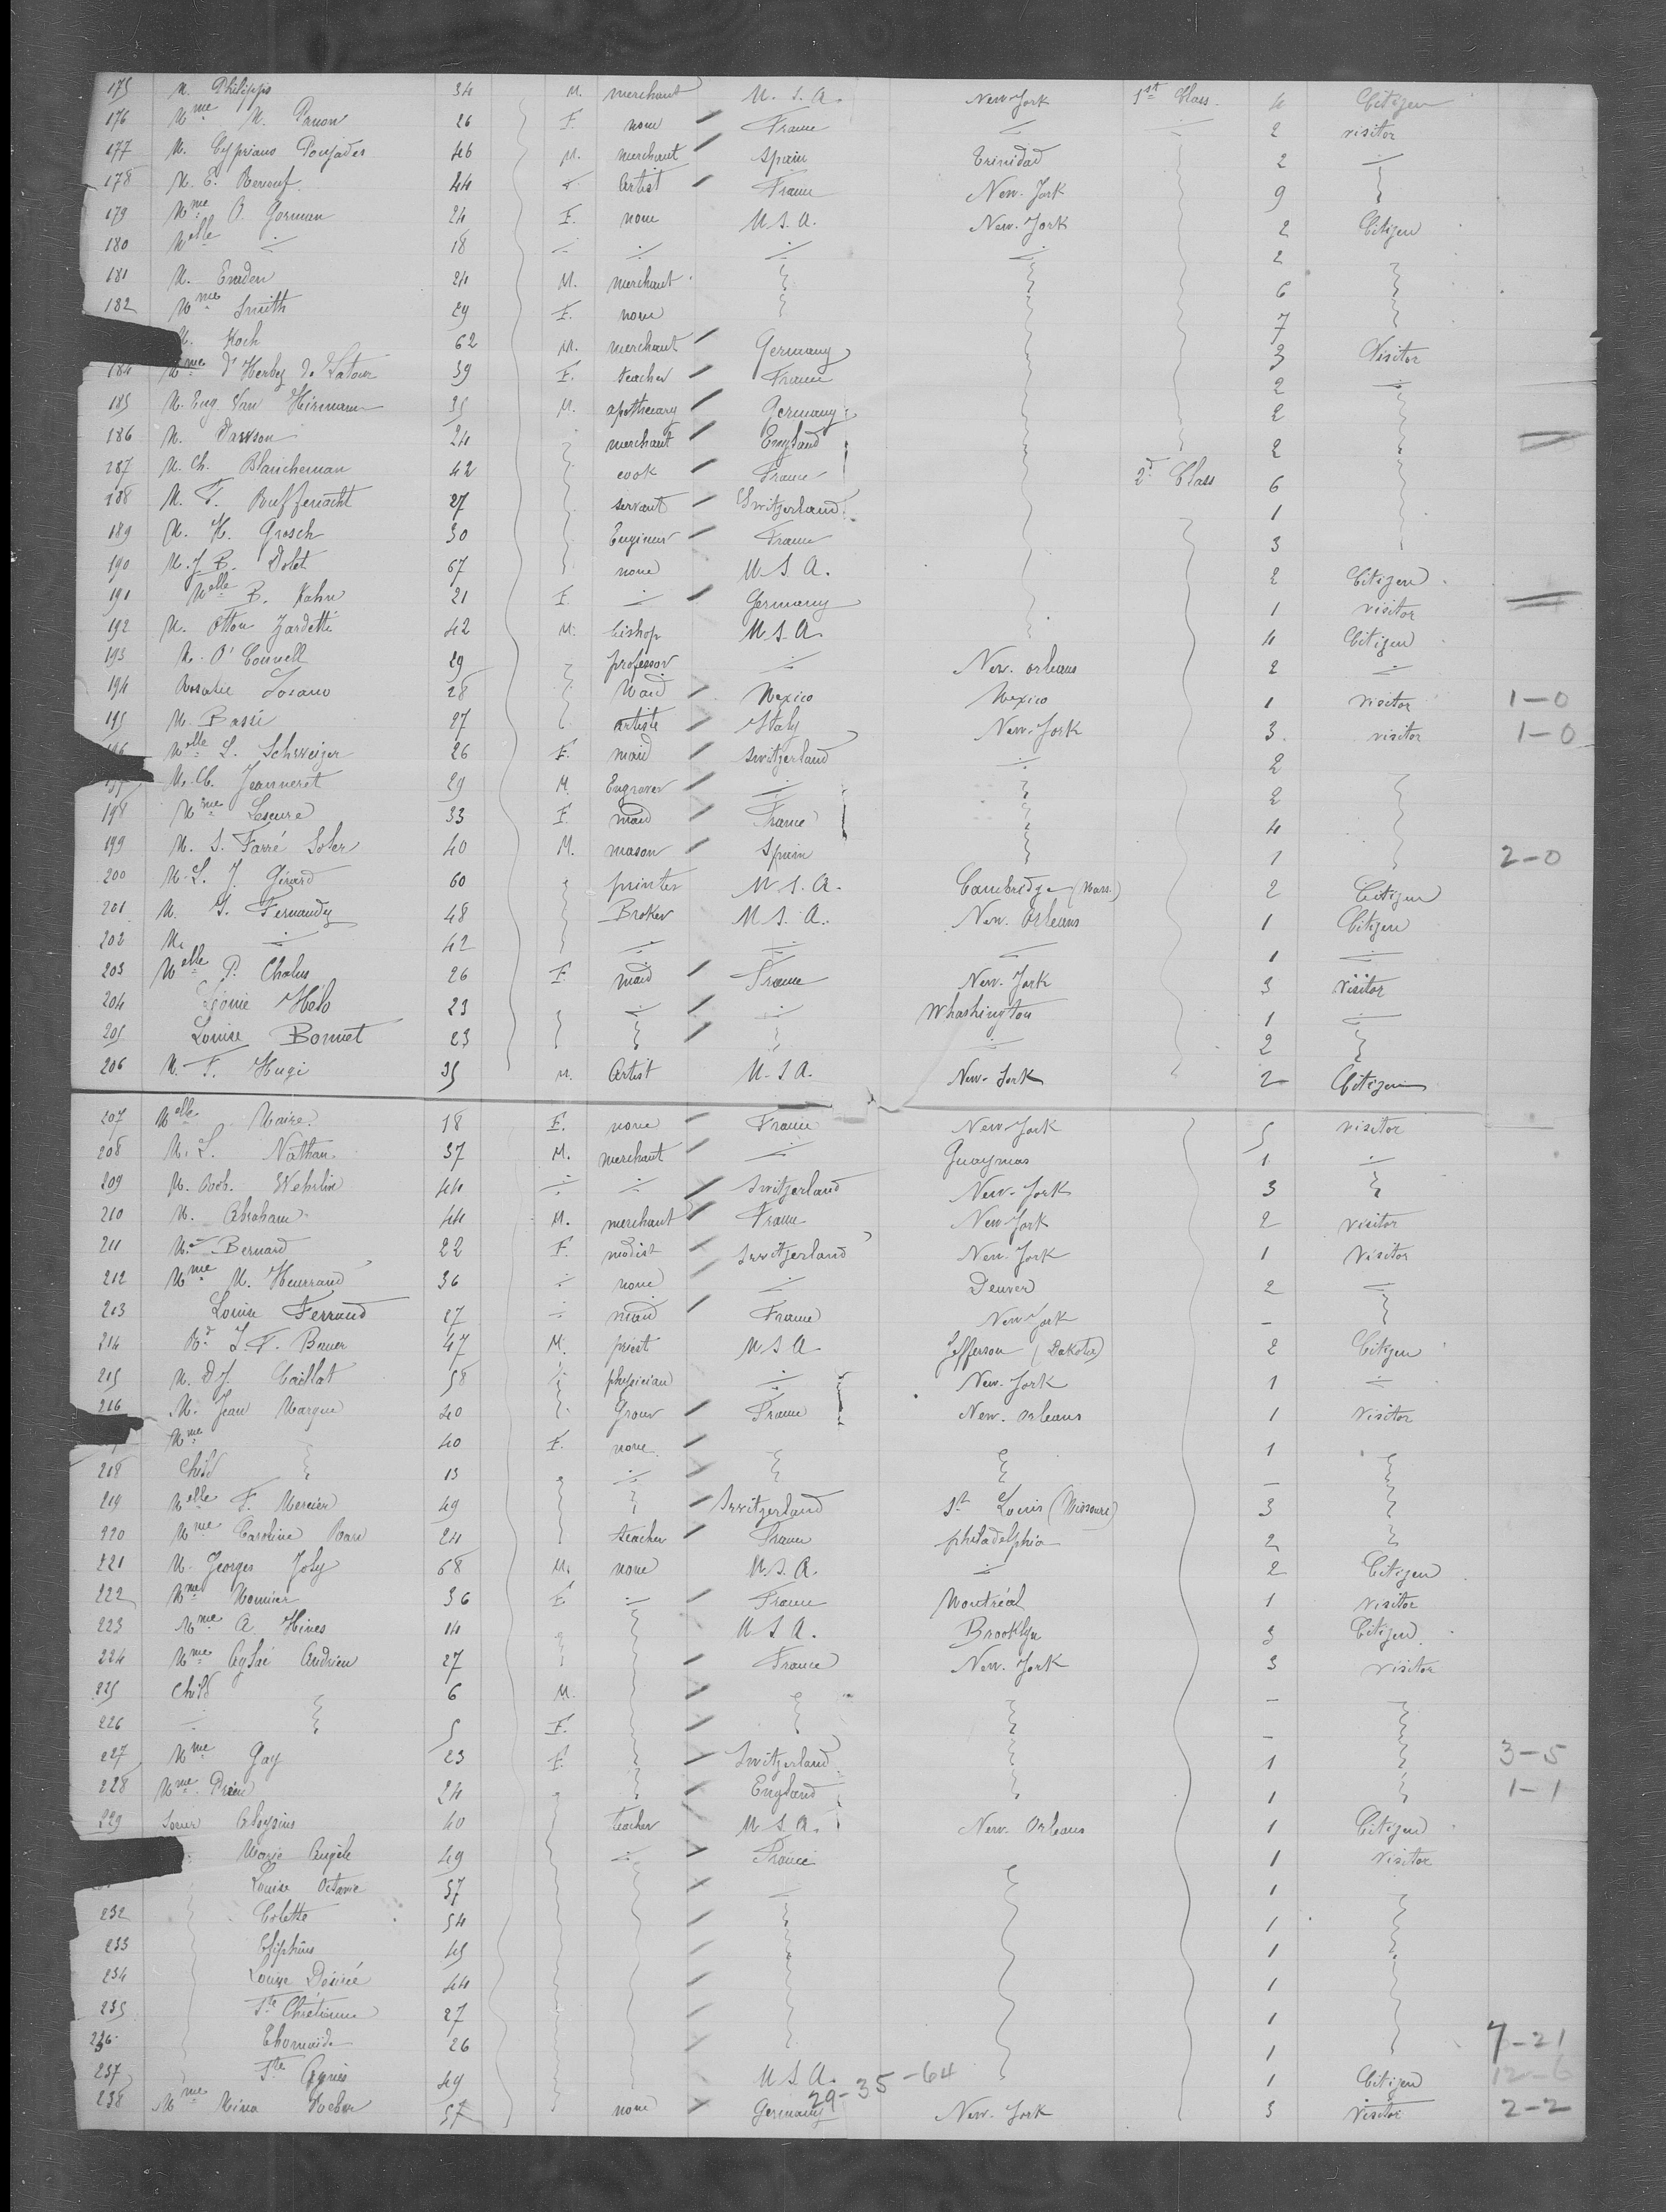 175 M. Philipps 34 M. merchant U.S.A. New-York 1st Class. 4 Citizen
176 Mme M. 26 F. none France 2 visitor
177 M. Cypriano Poujades 46 M. merchant Spain Trinidad 2
178 M. E. Renouf. 44 Artist France New-York 9
179 Mme O. Gorman 24 F. none U.S.A. New-York 2 Citizen
180 Melle 18 2
181 M. Emden 24 M. merchant 6
182 Mme Smith 29 F. none 7
M. Koch 62 M. merchant Germany 3 Visitor
184 Mme d'Herbey de Latour 39 F. teacher France 2
185 M. Eug. Van Hirmann 35 M. apothecary Germany 2
186 M. 24 merchant England 2
187 M. Ch. Blancheman 42 cook France 2d Class 6
188 M. F. Rueffenacht 27 servant Switzerland 1
189 M. H. Grosch 30 Engineer France 3
190 M. J. B. Dolet 67 none U.S.A. 2 Citizen
191 Melle B. Kahn 21 F. Germany 1 visitor
192 M. Otton Zardetti 42 M. bishop U.S.A. 4 Citizen
193 M. O'Connell 29 professor New-Orleans 2
194 Rosalie Losano 28 Maid Mexico Mexico 1 visitor 1-0
195 M. Bassi 27 artiste Italy New-York 3. visitor 1-0
196 Melle L. Schweizer 26 F. maid Switzerland 2
M. Ch. Jeanneret 29 M. Engraver 2
198 Mme Lescure 33 F. maid France 4
199 M. S. Farré Soler 40 M. mason Spain 1 2-0
200 M. L. J. Girard 60 printer U.S.A. Cambridge (Mass.) 2 Citizen
201 M. S. Fernandez 48 Broker U.S.A. New-Orleans 1 Citizen
202 M. 42 1
203 Melle P. Chalus 26 F. maid France New-York 3 visitor
204 Léonie Hélo 23 Whashington 1
205 Louise Bonnet 23 2
206 M. F. Hugi 35 M. Artist U.S.A. New-York 2 Citizen
207 Melle Maire 18 F. none France New-York 5 visitor
208 M. L. Nathan 37 M. merchant Guaymas 1
209 M. Rod. Wehrlin 44 Switzerland New-York 3
210 M. Abraham 44 M. merchant France New-York 2 visitor
211 M. Bernard 22 F. modist Switzerland New-York 1 Visitor
212 Mme M. Heurraud 36 none Denver 2
213 Louise Ferraud 27 maid France New-York -
214 Rd J. F. Bruer 47 M. priest U.S.A. Jefferson (Dakota) 2 Citizen
215 M. D. J. Caillat 58 physician New-York 1
216 M. Jean Marque 40 Grocer France New-Orleans 1 Visitor
Mme 40 F. none 1
218 Child 13 -
219 Melle F. Mercier 49 Switzerland St Louis (Missouri) 3
220 Mme Caroline 24 teacher France philadelphia 2
221 M. Georges Joly 68 M. none U.S.A. 2 Citizen
222 Mme Monnier 36 F. France Montréal 1 Visitor
223 Mme A. Hines 14 U.S.A. Brooklyn 3 Citizen
224 Mme Aglaé Andrieu 27 France New-York 3 visitor
225 Child 6 M. -
226 5 F. -
227 Mme Gay 23 F. Switzerland 1 3-5
228 Mme 24 England 1 1-1
229 Soeur Aloysius 40 teacher U.S.A. New-Orleans 1 Citizen
Marie Angèle 49 France 1 Visitor
Louise Octavie 37 1
232 Colette 54 1
233 45 1
234 Louise Désirée 44 1
235 Ste Chrétienne 27 1
236 26 1 7-21
237 Ste Agnès 49 U.S.A. 1 Citizen 12-6
29-35-64
238 Mme Mina Weber 57 none Germany New-York 3 Visitor 2-2